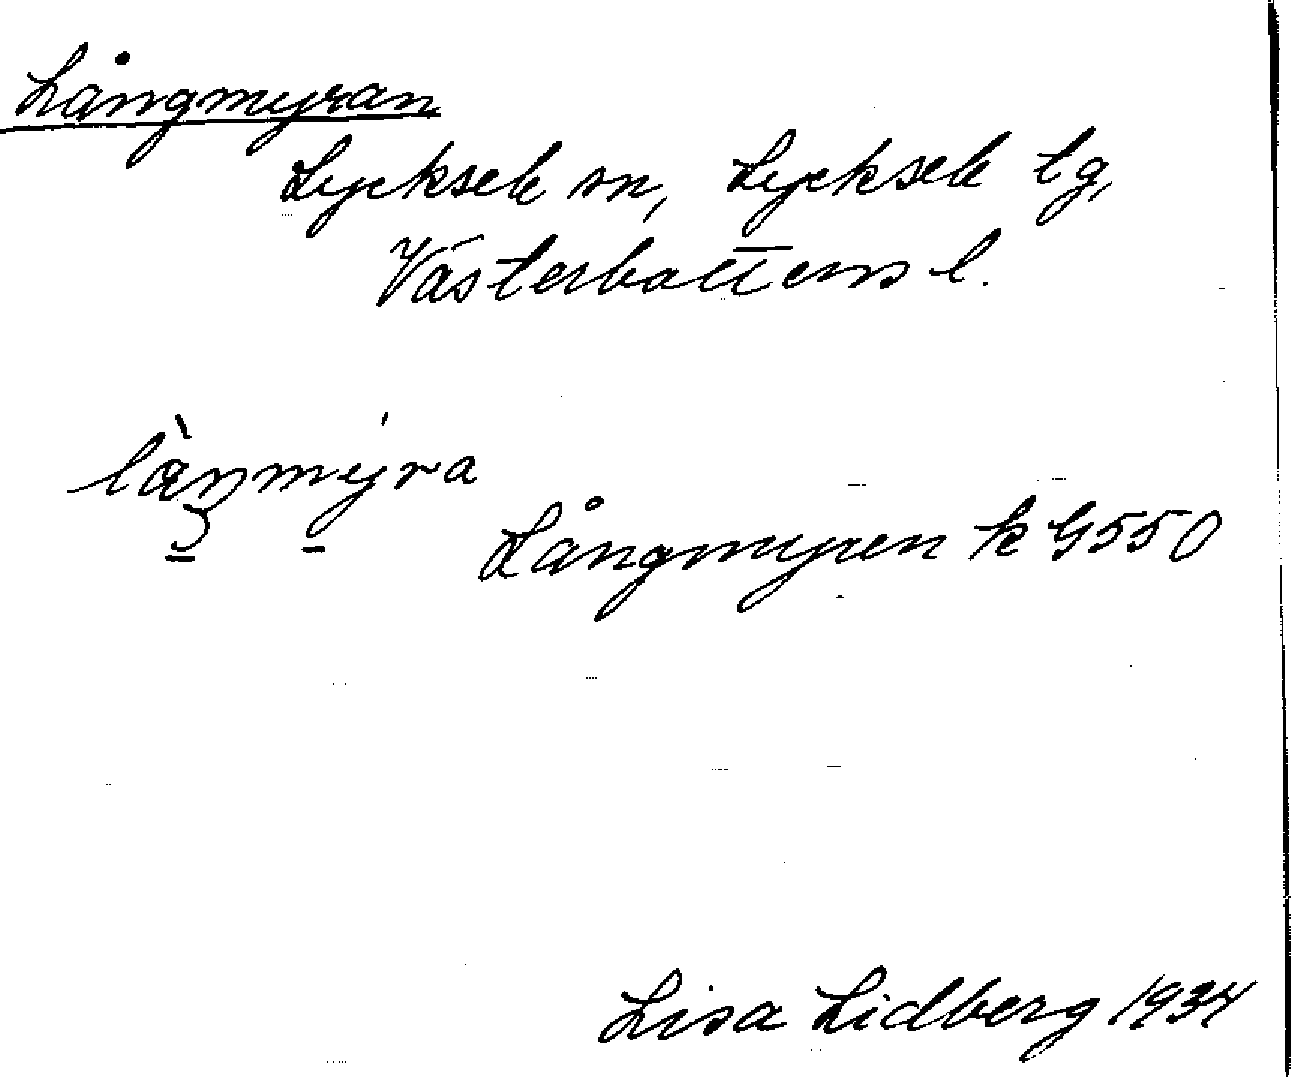 Långmyran
Lycksele sn, Lycksele tg,
Västerbottens l.
lànmýra
Långmyren k G550
Lisa Lidberg 1934